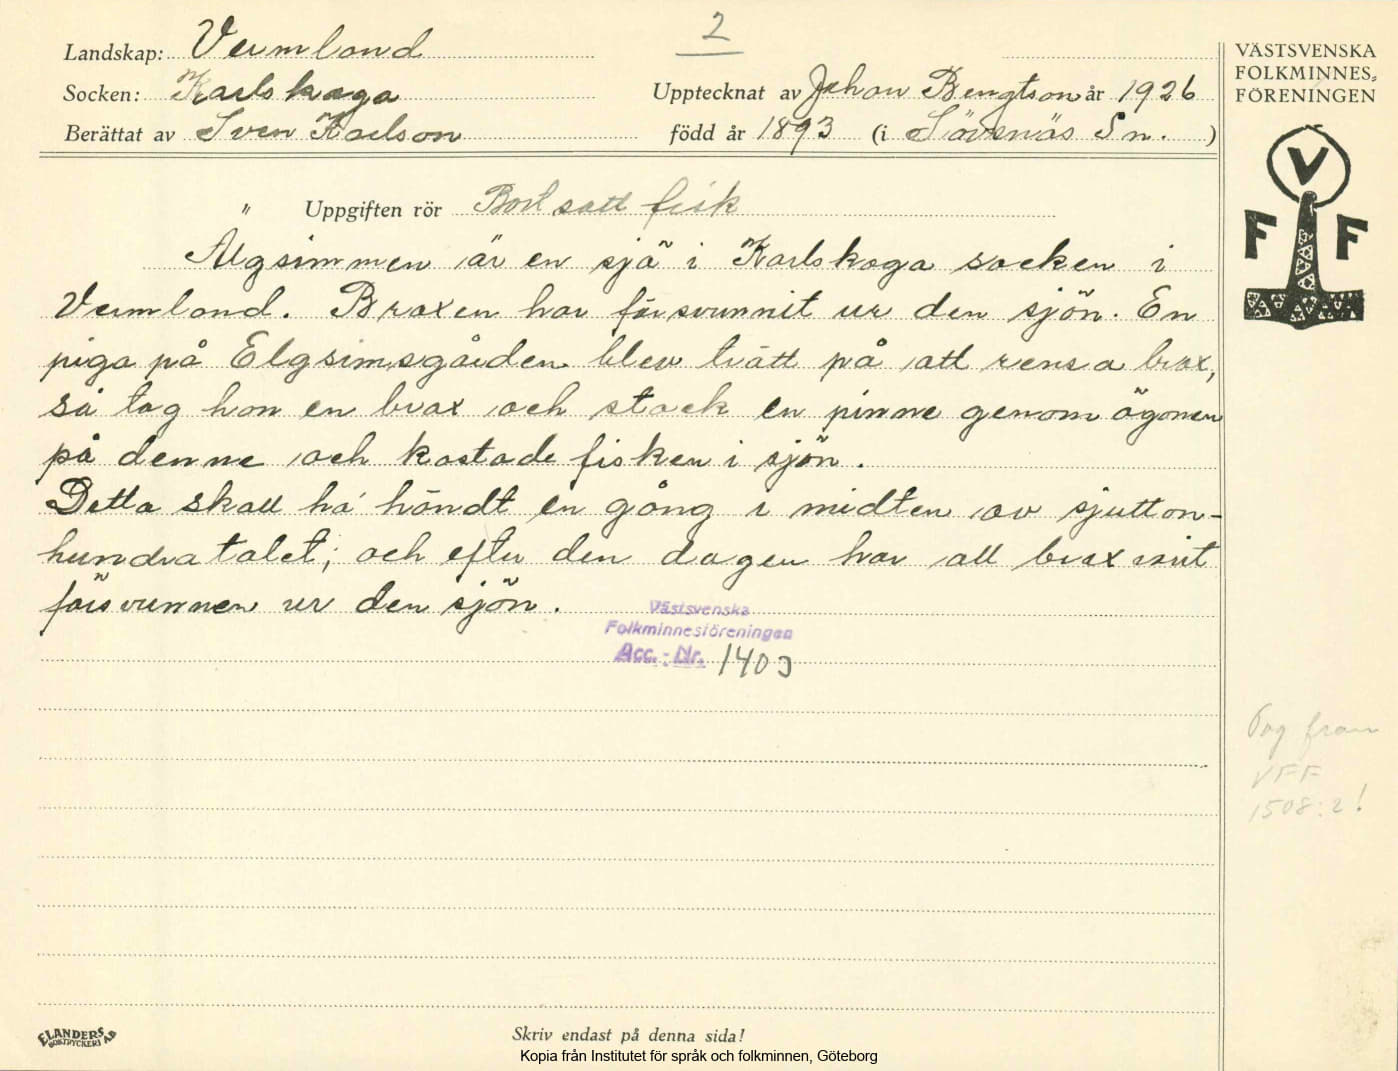 2
Landskap: Vermland
VÄSTSVENSKA
FOLKMINNES-
FÖRENINGEN
Socken: Karlskoga
Upptecknat av Johan Bengtson år 1926
Berättat av Sven Karlson
född år 1893 (i Sävsnäs Sn. )
V
F F
" Uppgiften rör Bortsatt fisk
Älgsimmen är en sjö i Karlskoga socken i
Vermland. Braxen har försvunnit ur den sjön. En
piga på Elgsimsgården blev trätt på att rensa brax,
så tog hon en brax och stack en pinne genom ögonen
på denne och kastade fisken i sjön.
Detta skall ha händt en gång i midten av sjutton-
hundratalet; och efter den dagen har all brax vait
försvunnen ur den sjön.
Västsvenska
Folkminnesföreningen
Acc. - Nr. 1403
från
VFF
1508:2!
ELANDERS
BOKTRYCKERI AB
Skriv endast på denna sida!
Kopia från Institutet för språk och folkminnen, Göteborg